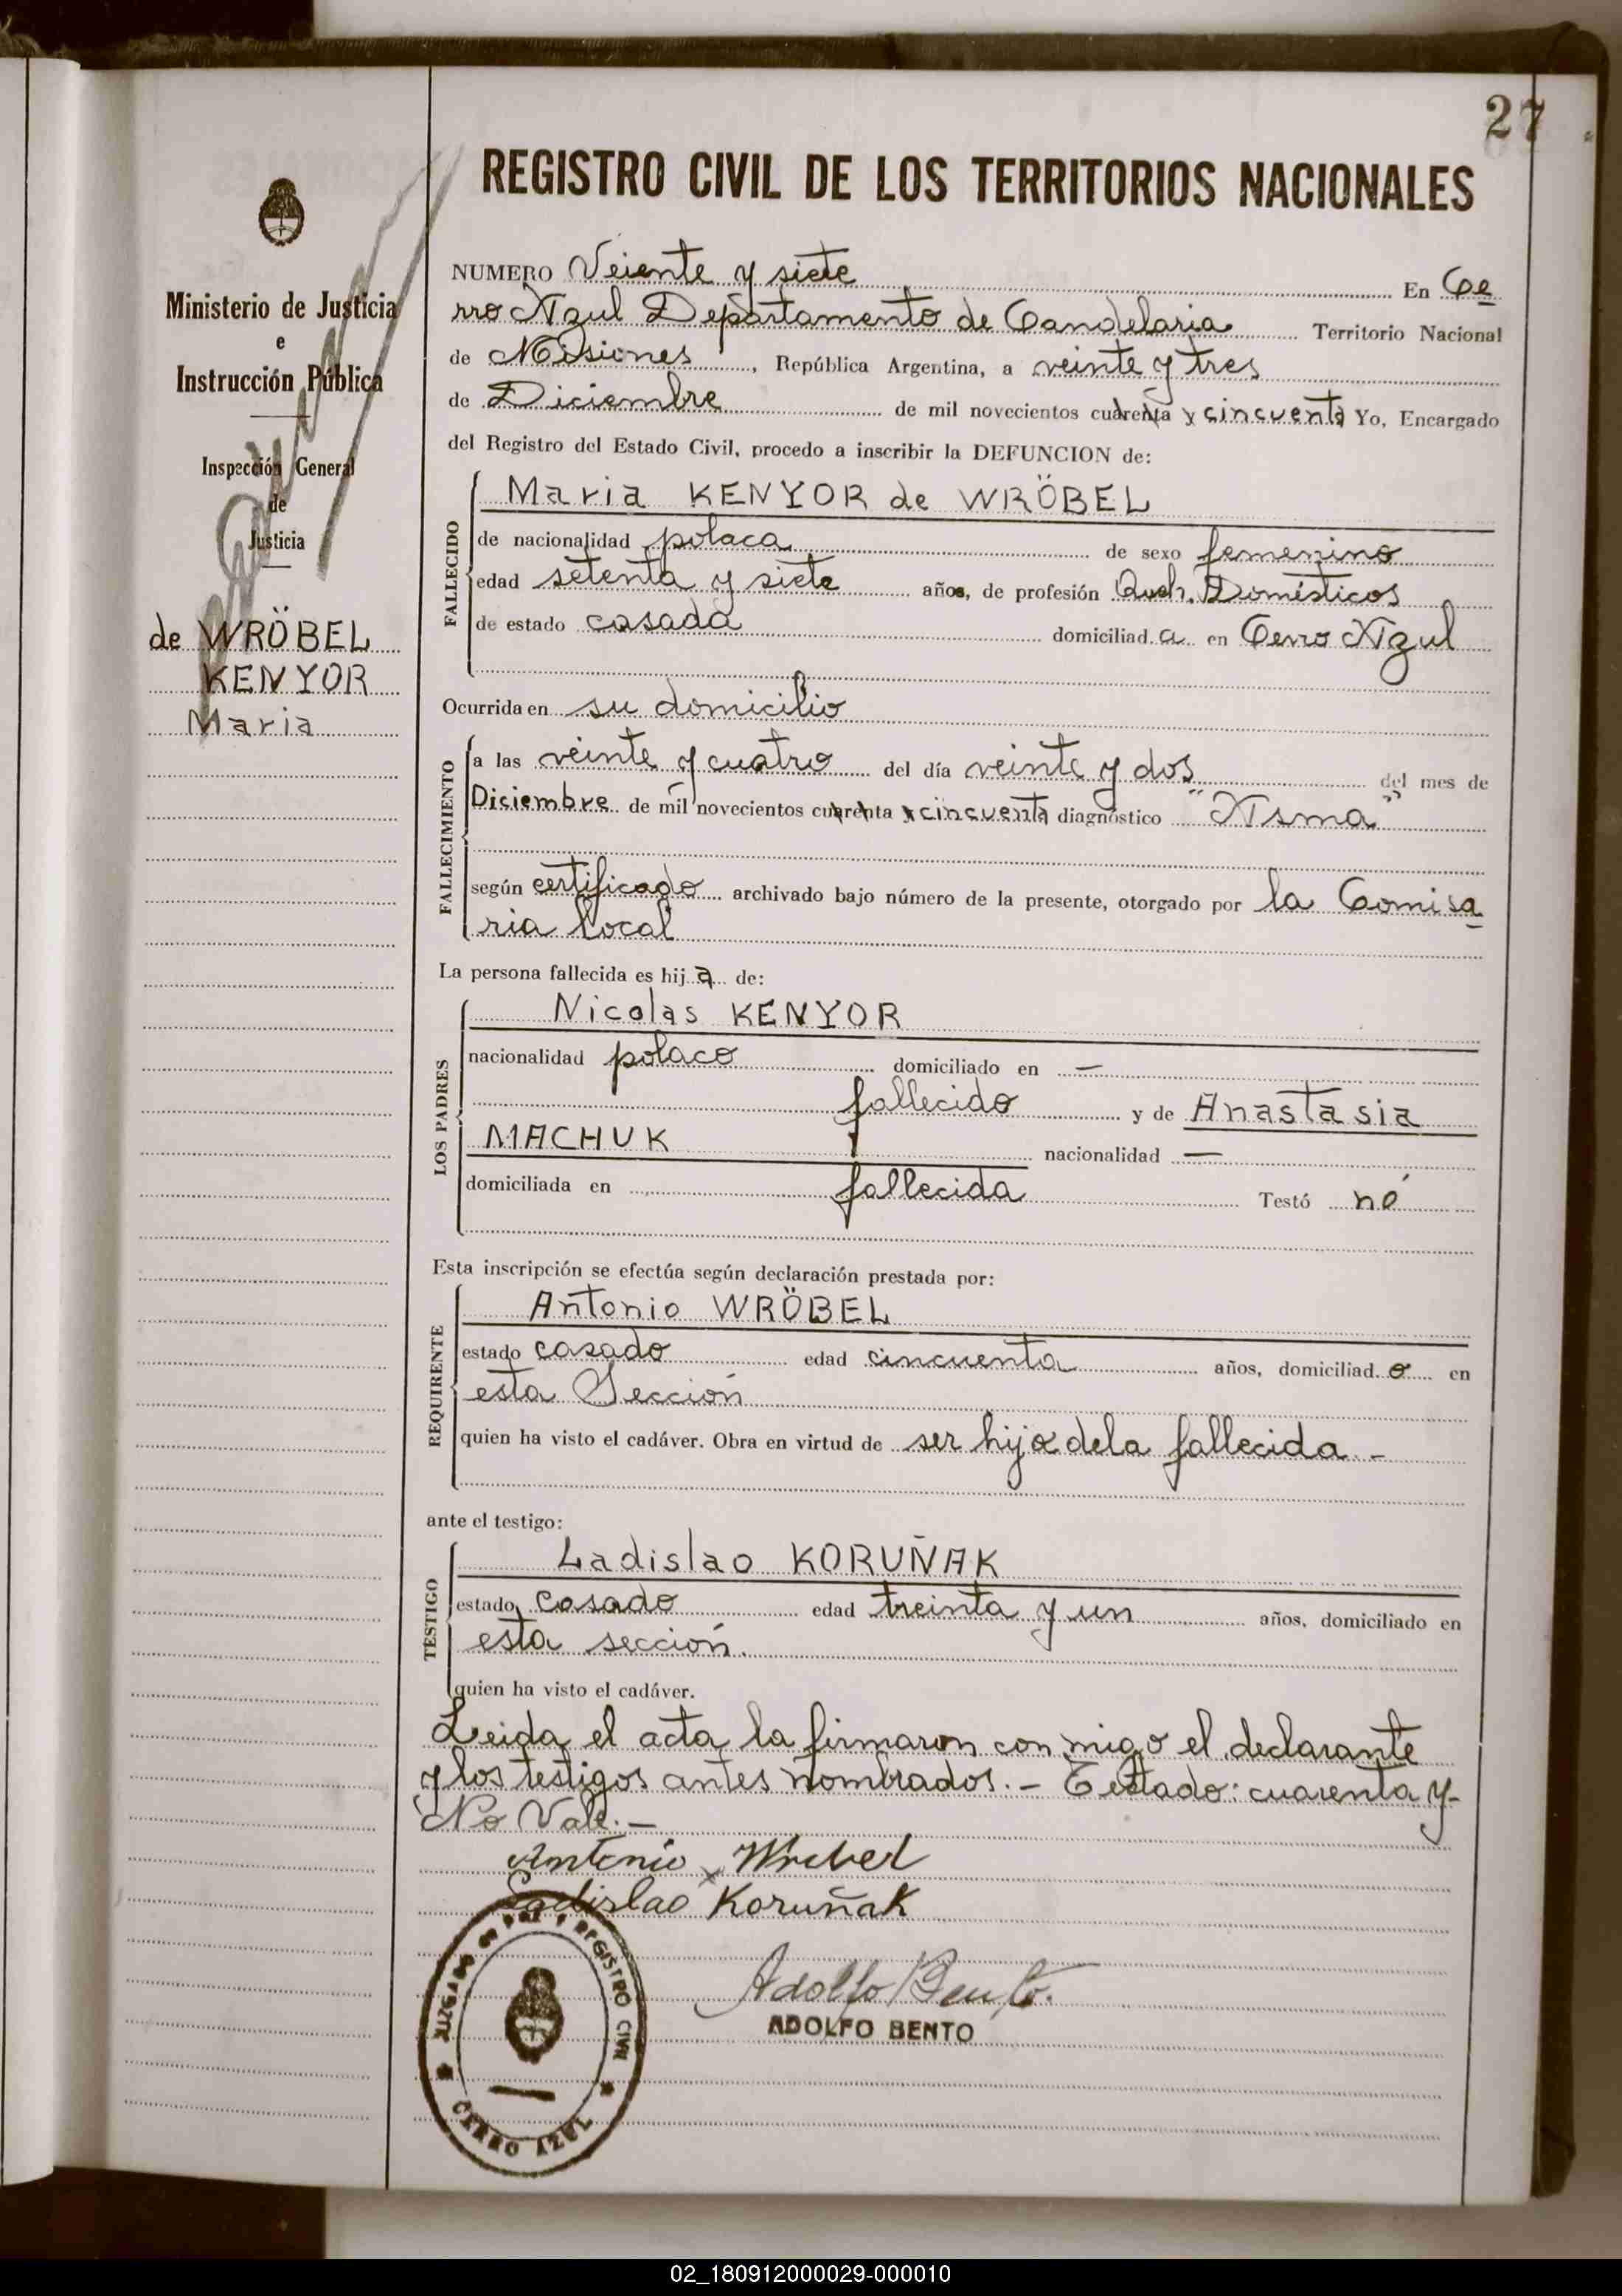 27
REGISTRO CIVIL DE LOS TERRITORIOS NACIONALES
Ministerio de Justicia
e
Instrucción Pública
Inspección General
de
Justicia
de WRÖBEL
KENYOR
Maria
NUMERO Veiente y siete En Ce
rro Azul Departamento de Candelaria Territorio Nacional
de Misiones, República Argentina, a veinte y tres
de Diciembre de mil novecientos cuarenta y cincuenta Yo, Encargado
del Registro del Estado Civil, procedo a inscribir la DEFUNCION de:
FALLECIDO
Maria KENYOR de WRÖBEL
de nacionalidad polaca de sexo femenino
edad setenta y siete años, de profesión Queh. Domésticos
de estado casada domiciliad a en Cerro Azul
Ocurrida en su domicilio
FALLECIMIENTO
a las veinte y cuatro del día veinte y dos del mes de
Diciembre de mil novecientos cuarenta y cincuenta diagnóstico "Asma"
según certificado archivado bajo número de la presente, otorgado por la Comisa
ria local
La persona fallecida es hij a de:
LOS PADRES
Nicolas KENYOR
nacionalidad polaco domiciliado en —
fallecido y de Anastasia
MACHUK nacionalidad —
domiciliada en fallecida Testó nó
Esta inscripción se efectúa según declaración prestada por:
REQUIRENTE
Antonio WRÖBEL
estado casado edad cincuenta años, domiciliad o en
esta Sección
quien ha visto el cadáver. Obra en virtud de ser hijo dela fallecida.-
ante el testigo:
TESTIGO
Ladislao KORUÑAK
estado casado edad treinta y un años, domiciliado en
esta sección.
quien ha visto el cadáver.
Leida el acta la firmaron con migo el declarante
y los testigos antes nombrados.- Testado: cuarenta y-
No Vale.-
Antonio Wrobel
Ladislao Koruñak
Adolfo Bento.
ADOLFO BENTO
JUZGADO DE PAZ Y REGISTRO CIVIL
CERRO AZUL
02_180912000029-000010